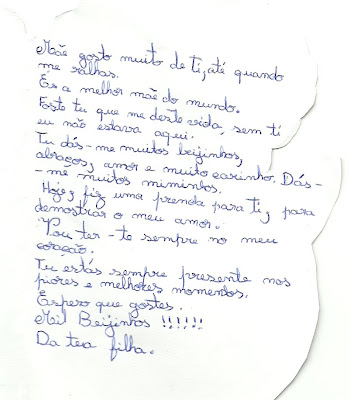 Mãe gosto muito de ti, até quando
me ralhas.
És a melhor mãe do mundo.
Foste tu que me deste vida, sem ti
eu não estava aqui.
Tu dás-me muitos beijinhos,
abraços, amor e muito carinho. Dás-
-me muitos miminhos.
Hoje, fiz uma prenda para ti, para
demostrar o meu amor.
Vou ter-te sempre no meu
coração.
Tu estás sempre presente nos
piores e melhores momentos.
Espero que gostes.
Mil Beijinhos !!!!!!
Da tua filha.